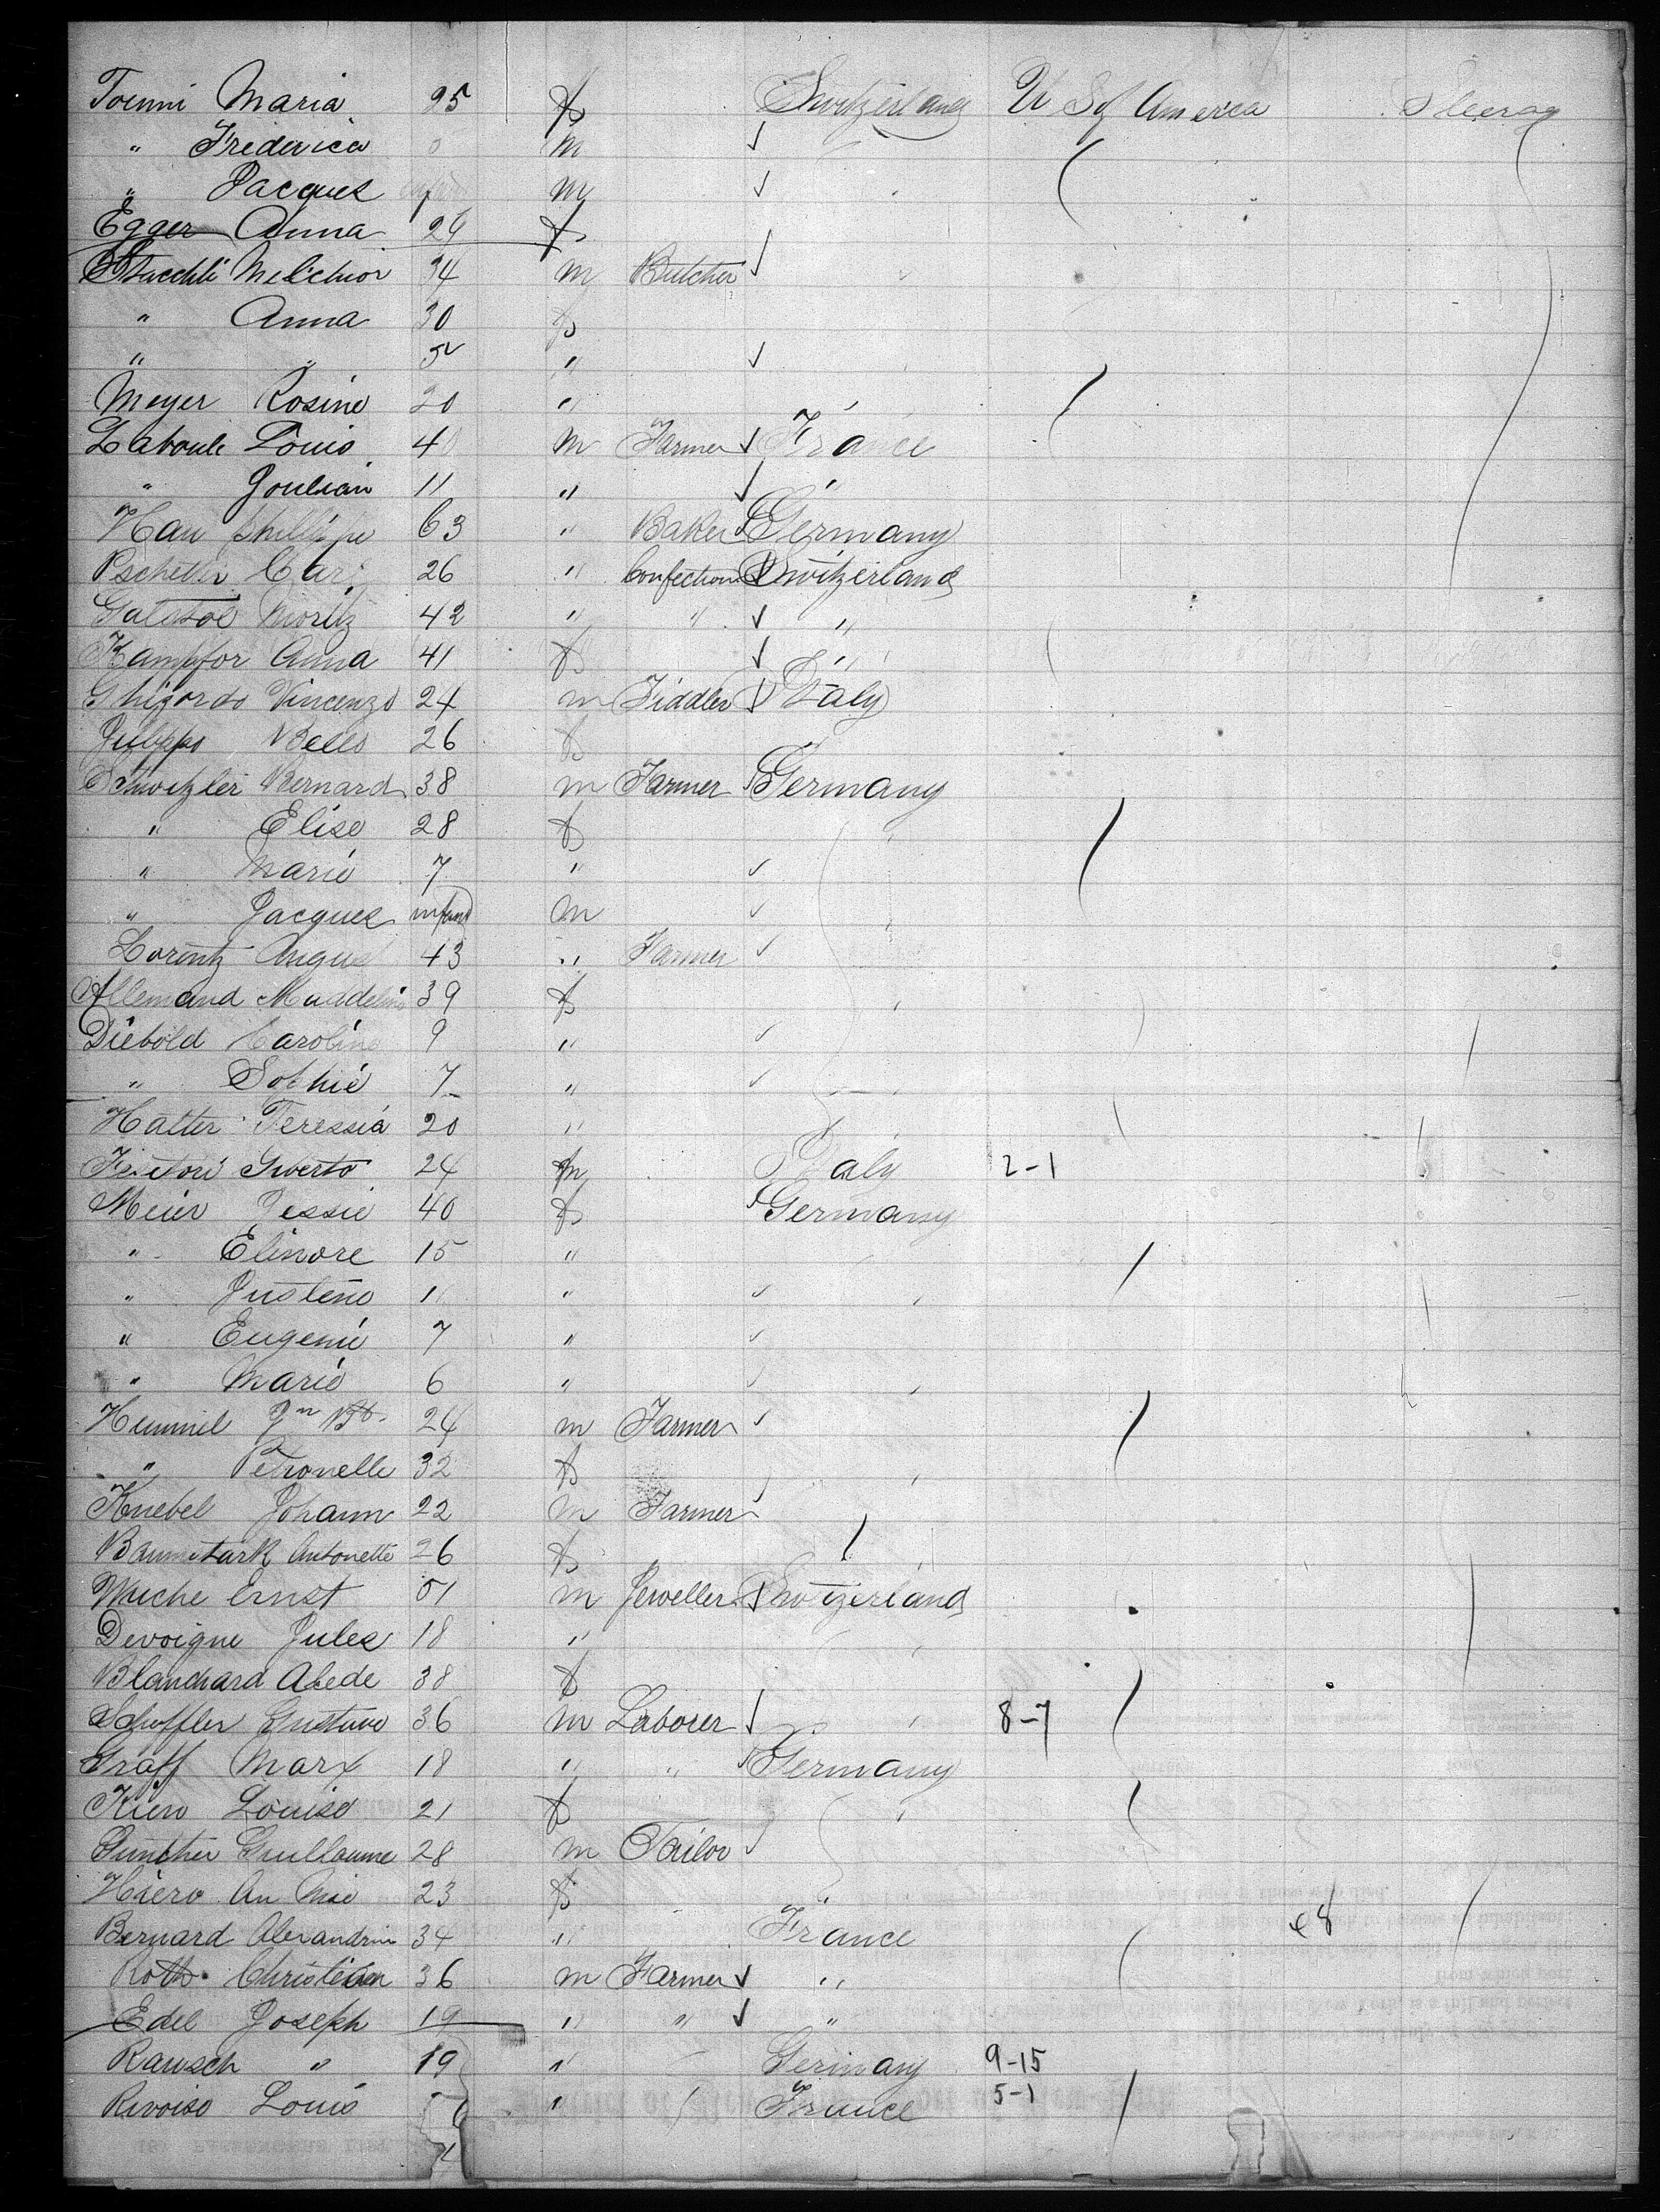 Toenni Maria 25 f Switzerland U S of America Steerag
" Frederica m
" Jacques m
Egger Anna 29 f
Staechli Melchior 34 m Butcher
" Anna 30 f
" " 5 "
Meyer Rosine 20 " "
Laboule Louis 40 m Farmer France
" Joulian 11 " "
Hau Phillipe 63 " Baker Germany
26 " Confection Switzerland
Moritz 42 " " "
Kampfor Anna 41 f "
Vincenzo 24 m Fiddler Italy
Bello 26 f "
Schweizler Bernard 38 m Farmer Germany
" Elise 28 f "
" Marie 7 "
" Jacques infant m
Lorentz August 43 " Farmer
Allemand Maddeline 39 f "
Diebold Caroline 9 "
" Sophie 7 "
Hatter Teressia 20 "
24 m Italy 2-1
Meier Jessie 40 f Germany
" Elinore 15 "
" Justine 11 "
" Eugenie 7 "
" Marie 6 "
Hummel Jn Bt 24 m Farmer
" Petronelle 32 f "
Knebel Johann 22 m Farmer
Baumstark Antonette 26 f
Wuche Ernst 51 m Jeweller Switzerland
Devoigne Jules 18 " "
Blanchard Alede 38 f
Schoffler Gustave 36 m Laborer " 8-7
Graff Marx 18 " " Germany
Kien Louise 21 f "
Gunther Guillaume 28 m Tailor
An Mie 23 f
Bernard Alexandrin 34 " France 48
Roth Christian 36 m Farmer "
Edel Joseph 19 " " "
Rausch " 19 " Germany 9-15
Rivoise Louis " France 5-1